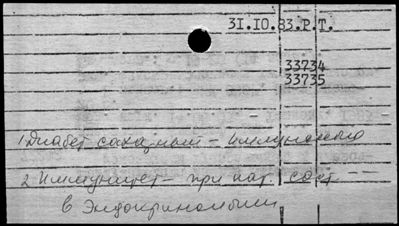 31.10.83.Р.Т.
33734
33735
1 Диабет сахарный — иммунология
2 Иммунитет — при пат. сост.
в Эндокринологии